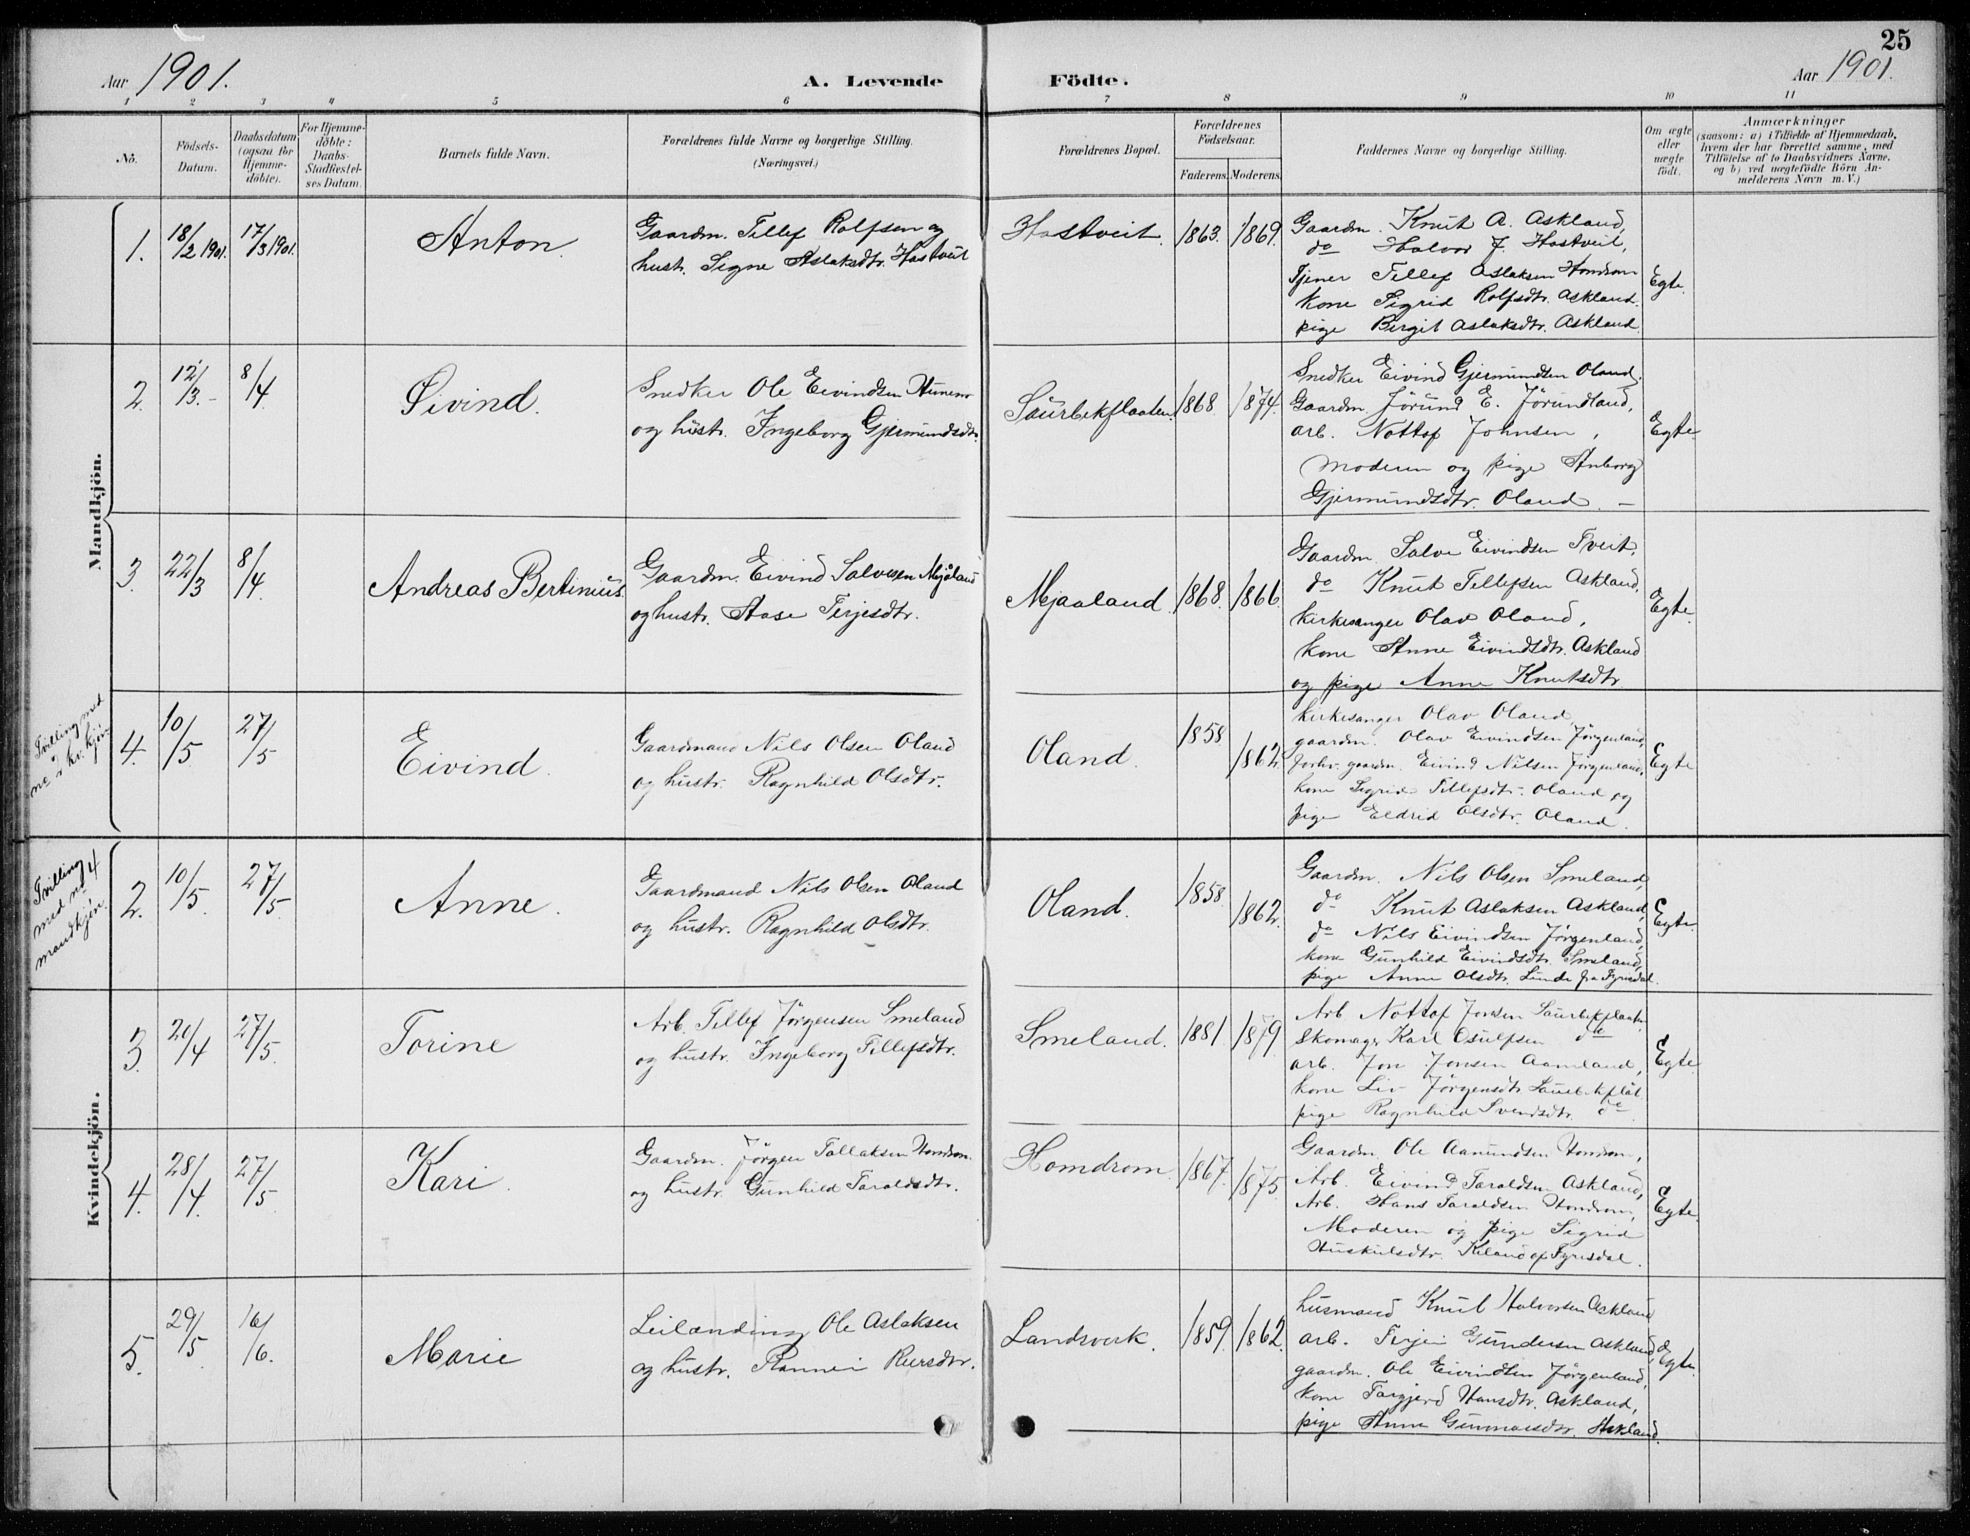 25
Aar 1901.
A. Levende Födte.
Aar 1901.
1 2 3 4 5 6 7 8 9 10 11
No.
Födsels-Datum.
Daabsdatum (ogsaa for Hjemme-döbte).
For Hjemme-döbte: Daabs-Stadfæstel-ses Datum.
Barnets fulde Navn.
Forældrenes fulde Navne og borgerlige Stilling.
(Næringsvei.)
Forældrenes Bopæl.
Forældrenes Födselsaar.
Faderens. Moderens.
Faddernes Navne og borgerlige Stilling.
Om ægte eller uægte födt.
Anmærkninger
(saasom: a) i Tilfælde af Hjemmedaab,
hvem der har forrettet samme, med
Tilföielse af to Daabsvidners Navne,
og b) ved uægtefödte Börn An-
melderens Navn m. V.)
Mandkjön.
1. 18/2 1901. 17/3 1901. Anton.
Gaardm. Tellef Rolfsen og
hustr. Signe Aslaksdtr. Hastveit
Hastveit. 1863. 1869.
Gaardm. Knut A. Askland,
do Halvor J. Hastveit,
Tjener Tellef Aslaksen Homdrom
kone Sigrid Rolfsdtr. Askland.
pige Birgit Aslaksdtr. Askland.
Egte.
2. 12/3.- 8/4 Øivind.
Snedker Ole Eivindsen
og hustr. Ingeborg Gjermundsdtr.
Saurbekflaaten. 1868. 1874.
Snedker Eivind Gjermundsen Oland.
Gaardm. Jørund E. Jørundland,
arb. Nottof Johnsen,
Moderen og pige Anborg
Gjermundsdtr. Oland. -
Egte
3. 22/3 8/4. Andreas Bertinius.
Gaardm. Eivind Salvesen Mjåland
og hustr. Aase Terjesdtr.
Mjaaland. 1868. 1866.
Gaardm. Salve Eivindsen Tveit,
do Knut Tellefsen Askland,
kirkesanger Olav Oland,
kone Anne Eivindsdtr. Askland
og pige Anne Knutsdtr
Egte.
Tvilling med
no 2 kv. kjøn
4. 10/5 27/5 Eivind.
Gaardmand Nils Olsen Oland
og hustr. Ragnhild Olsdtr.
Oland. 1858 1862.
kirkesanger Olav Oland,
gaardm. Olav Eivindsen Jørgenland,
forhv. gaardm. Eivind Nilsen Jørgenland,
kone Sigrid Tellefsdtr. Oland og
pige Eldrid Olsdtr. Oland.
Egte
Kvindekjön.
Tvilling
med no 4
mandkjøn.
2. 10/5. 27/5. Anne.
Gaardmand Nils Olsen Oland
og hustr. Ragnhild Olsdtr.
Oland. 1858. 1862.
Gaardm. Nils Olsen Smeland,
do Knut Aslaksen Askland,
do Nils Eivindsen Jørgenland,
kone Gunhild Eivindsdtr. Smeland,
pige Anne Olsdtr. Linde fra Fyresdal.
Egte.
3. 20/4 27/5. Torine
Arb. Tellef Jørgensen Smeland
og hustr. Ingeborg Tellefsdtr.
Smeland. 1881 1879.
Arb. Nottof Jonsen Saurbekflaaten
Skomager Karl Osulfsen do
arb. Jon Jonsen Aamland,
kone Liv Jørgensdtr.
pige Ragnhild Svendsdtr. do.
Egte.
4. 28/4. 27/5. Kari.
Gaardm. Jørgen Tallaksen Homdrom
og hustr. Gunhild Taraldsdtr.
Homdrom 1867. 1875
Gaardm. Ole Aanundsen Homdrom,
Arb. Eivind Taraldsen Askland,
Arb. Hans Taraldsen Homdrom,
Moderen og pige Sigrid
Kiland af Fyresdal.
Egte.
5. 29/5. 16/6. Marie
Leilænding Ole Aslaksen
og hustr. Rannei
Landsverk. 1859. 1862.
husmand Knut Halvorsen Askland
arb. Terjei Gundersen Askland,
gaardm. Ole Eivindsen Jørgenland,
kone Targjerd Hansdtr. Askland,
pige Anne Gunnarsdtr. Askland.
Egte.